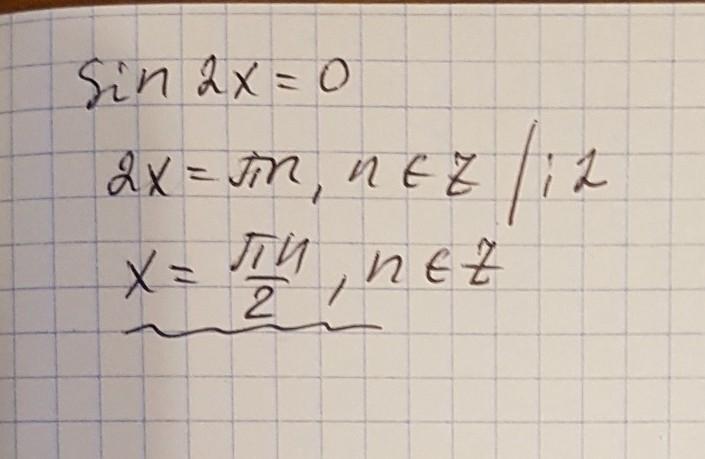 sin 2x = 0
2x = πn, n ∈ Z / : 2
x = πn/2, n ∈ Z